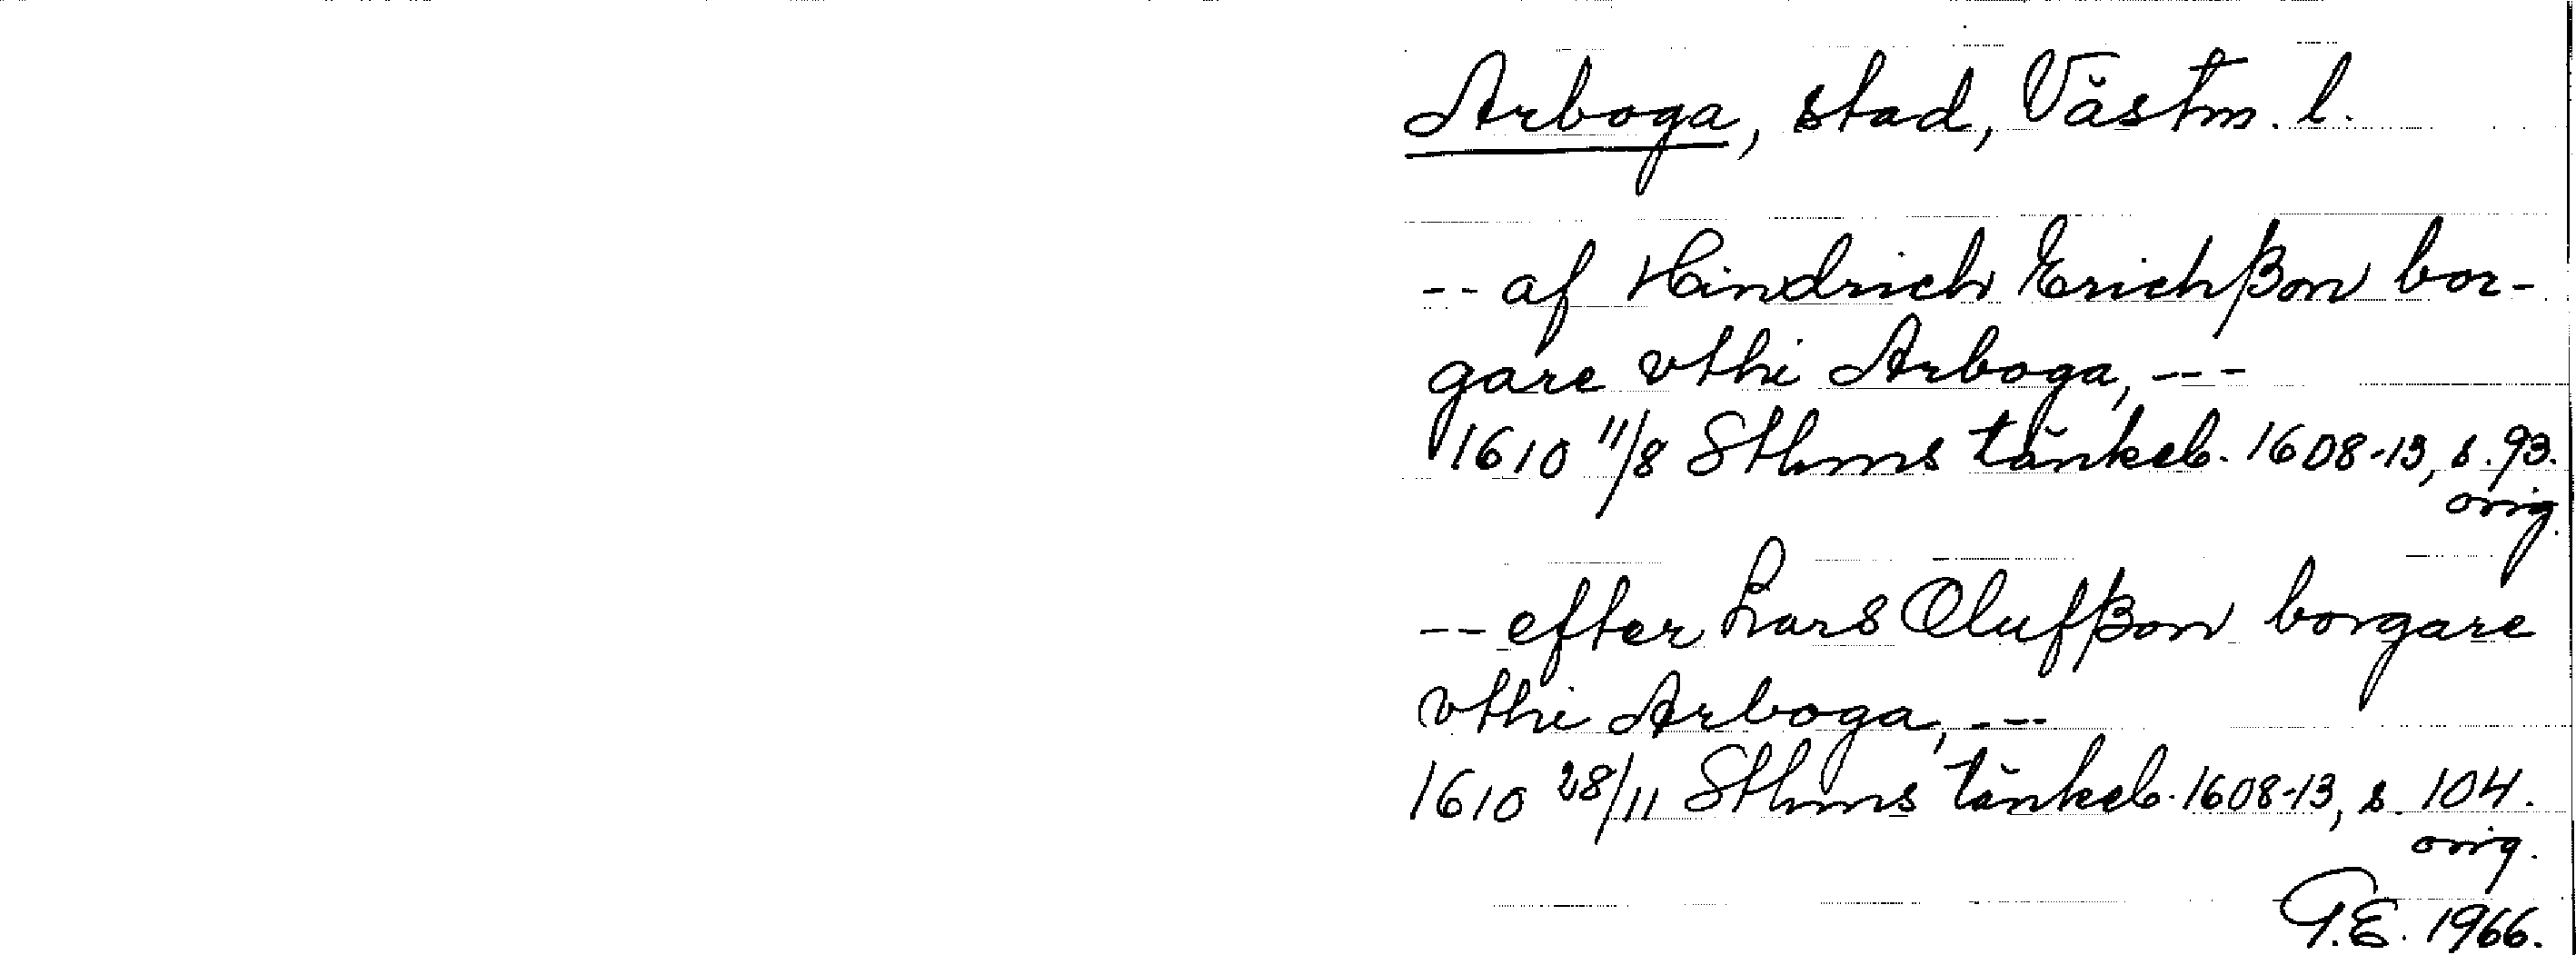 Arboga, stad, Västm. l.
-- af Hindrich Erichßon bor-
gare vthi Arboga, ---
1610 11/8 Sthms tänkeb. 1608-13, s. 93.
orig.
-- efter Lars Olufßon borgare
vthi Arboga, ---
1610 28/11 Sthms tänkeb. 1608-13, s. 104.
orig.
G.E. 1966.